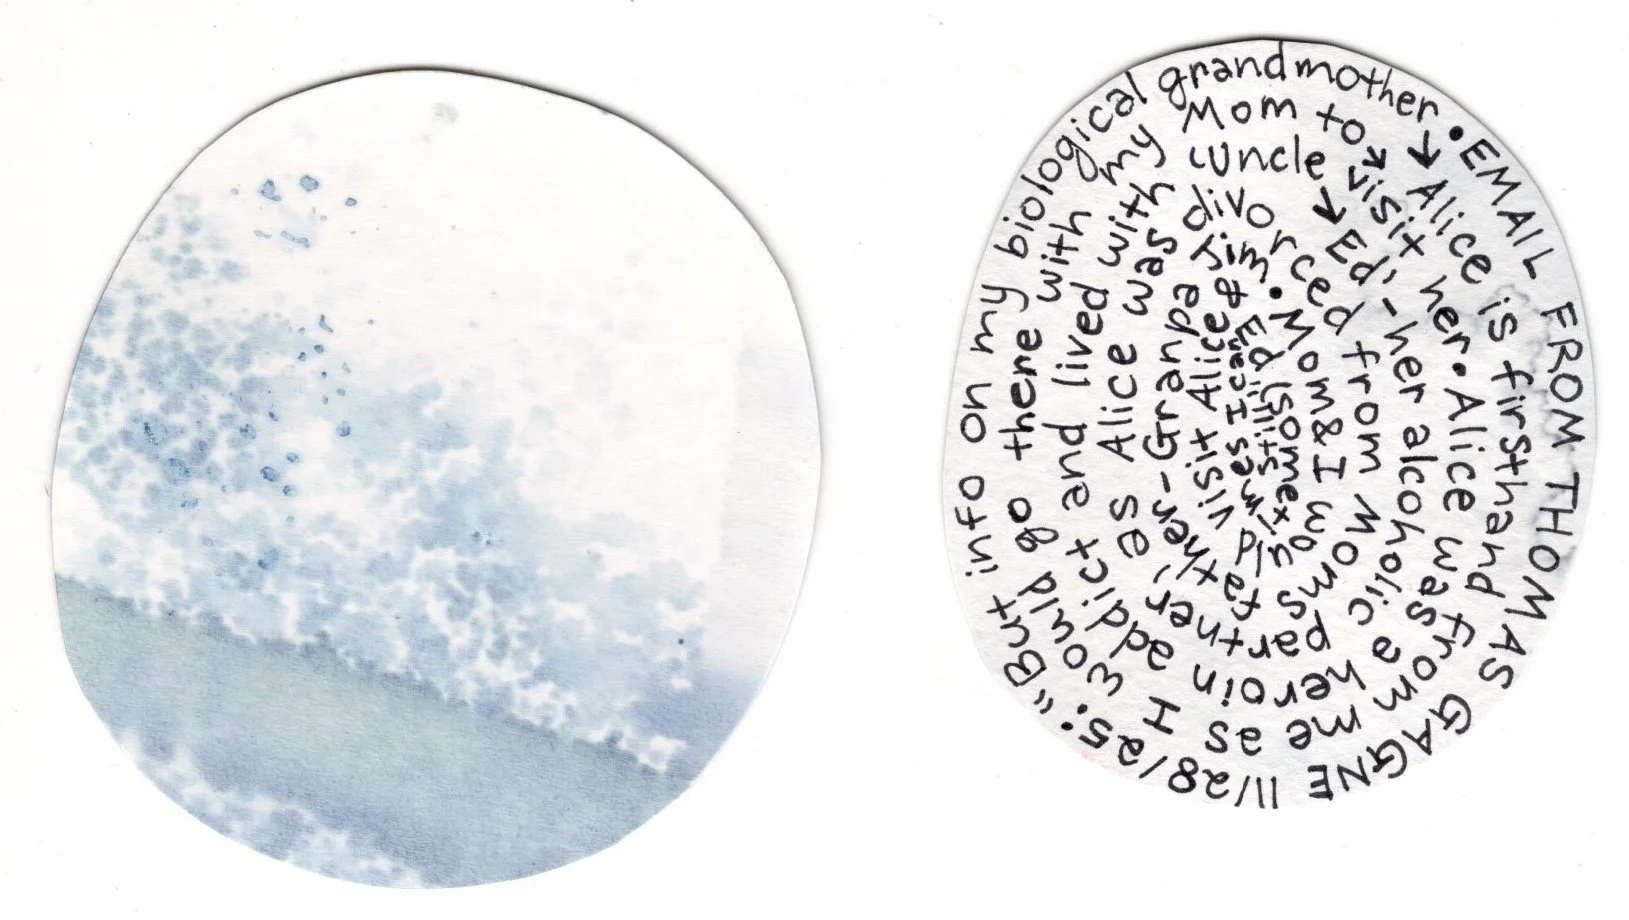 • EMAIL FROM THOMAS GAGNE 11/28/25: "But info on my biological grandmother
→ Alice is firsthand from me as I would go there with my Mom to
→ visit her. Alice was a heroin addict and lived with 'uncle
→ Ed', - her alcoholic partner, as Alice was divorced from Mom's father - Granpa Jim.
• Mom & I would visit Alice & Ed (sometimes I can still